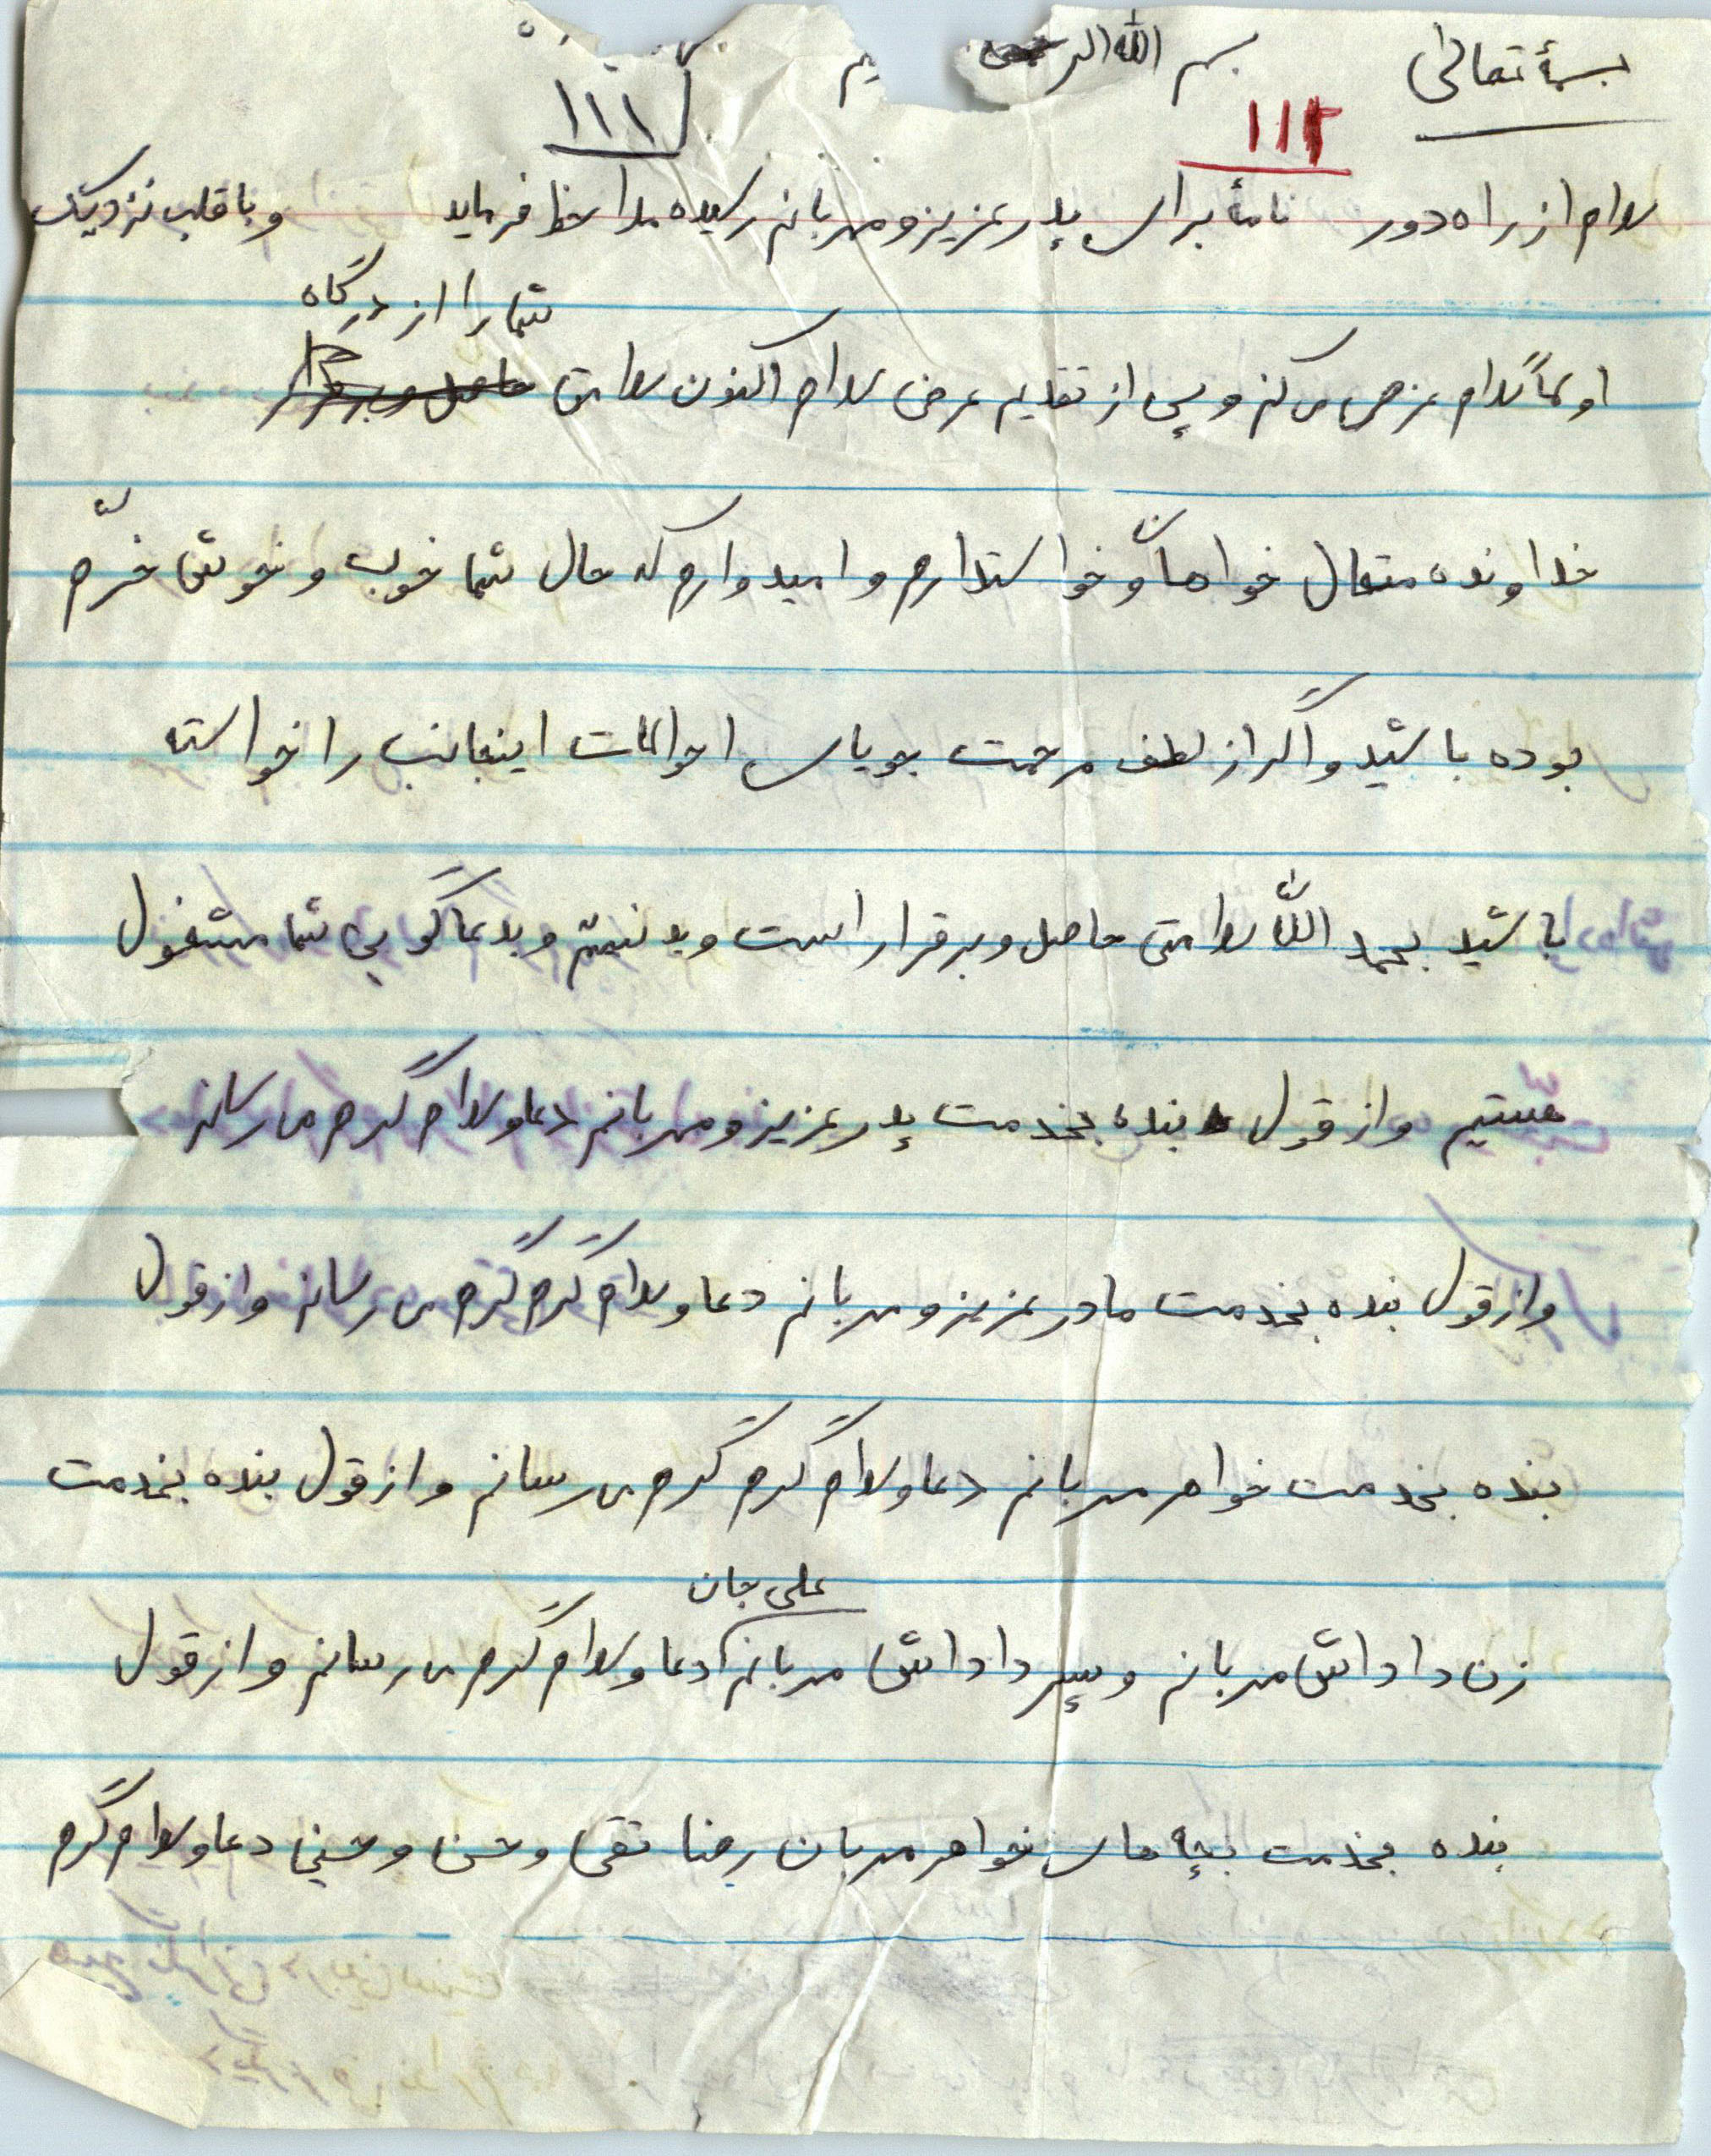 بسمهٔ تعالی
بسم الله الر یم
۱۱۲
۱۱۱
سلام از راه دور نامهٔ برای پدر عزیز و مهربانم رسیده ملاحظ فرماید و با قلب نزدیک
شما را از درگاه
اولاً سلام عرض می کنم و پس از تقدیم عرض سلام اکنون سلامتی
خداونده متعال خواهاً و خواستدارم و امیدوارم که حال شما خوب و خوش خرّم
بوده باشید و اگر از لطف مرحمت جویای احوالات اینجانب را خواسته
باشید بحمد اللّه سلامتی حاصل و برقرار است و بد نیستم و بدعا گویی شما مشغول
هستیم و از قول بنده بخدمت پدر عزیز و مهربانم دعا و سلام گرم می رسانم
و از قول بنده بخدمت مادر عزیز و مهربانم دعا و سلام گرم گرم می رسانم و از قول
بنده بخدمت خواهر مهربانم دعا و سلام گرم گرم می رسانم و از قول بنده بخدمت
علی جان
زن داداش مهربانم و پسر داداش مهربانم دعا و سلام گرم می رسانم و از قول
بنده بخدمت بچه های خواهر مهربان رضا تقی و حسن و حسین دعا و سلام گرم